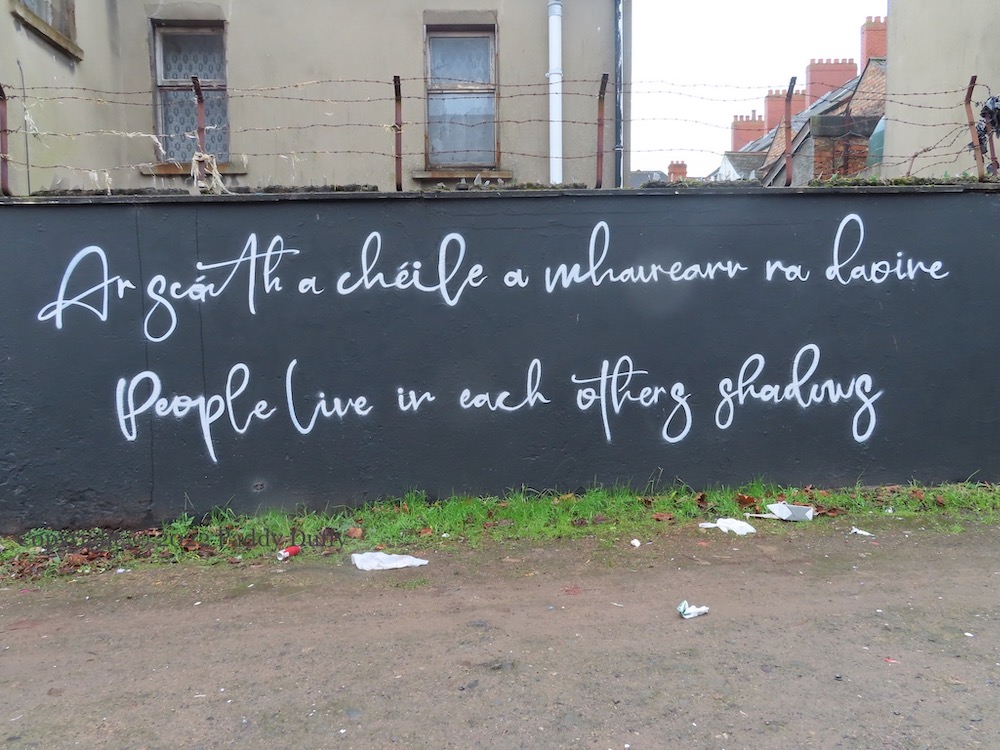 Ar scáth a chéile a mhaireann na daoine
People live in each others shadows
Copyright Paddy Duffy